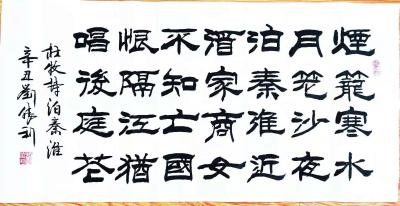 煙籠寒水
月笼沙夜
泊秦淮近
酒家商女
不知亡國
恨隔江猶
唱後庭花
杜牧詩泊秦淮
辛丑劉